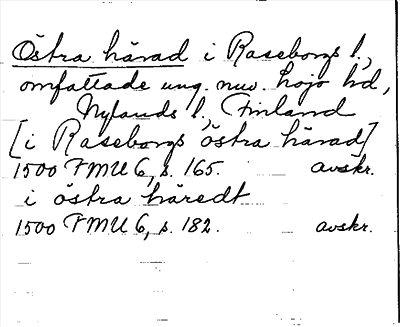 Östra härad i Raseborgs l.,
omfattade ung. nuv. Lojo hd,
Nylands l., Finland
[i Raseborgs östra härad]
1500 FMU 6, s. 165. avskr.
i östra häredt
1500 FMU 6, s. 182. avskr.